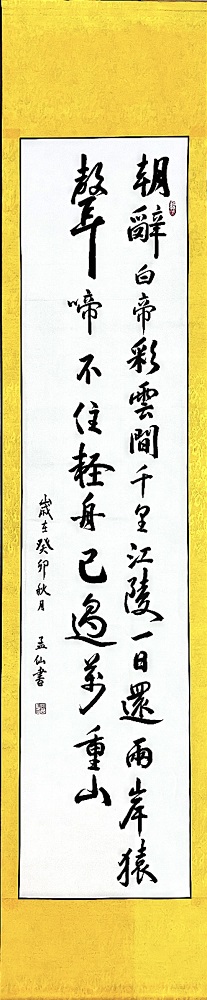 朝辭白帝彩雲間千里江陵一日還兩岸猿
聲啼不住輕舟已過萬重山
歲在癸卯秋月 孟仙書